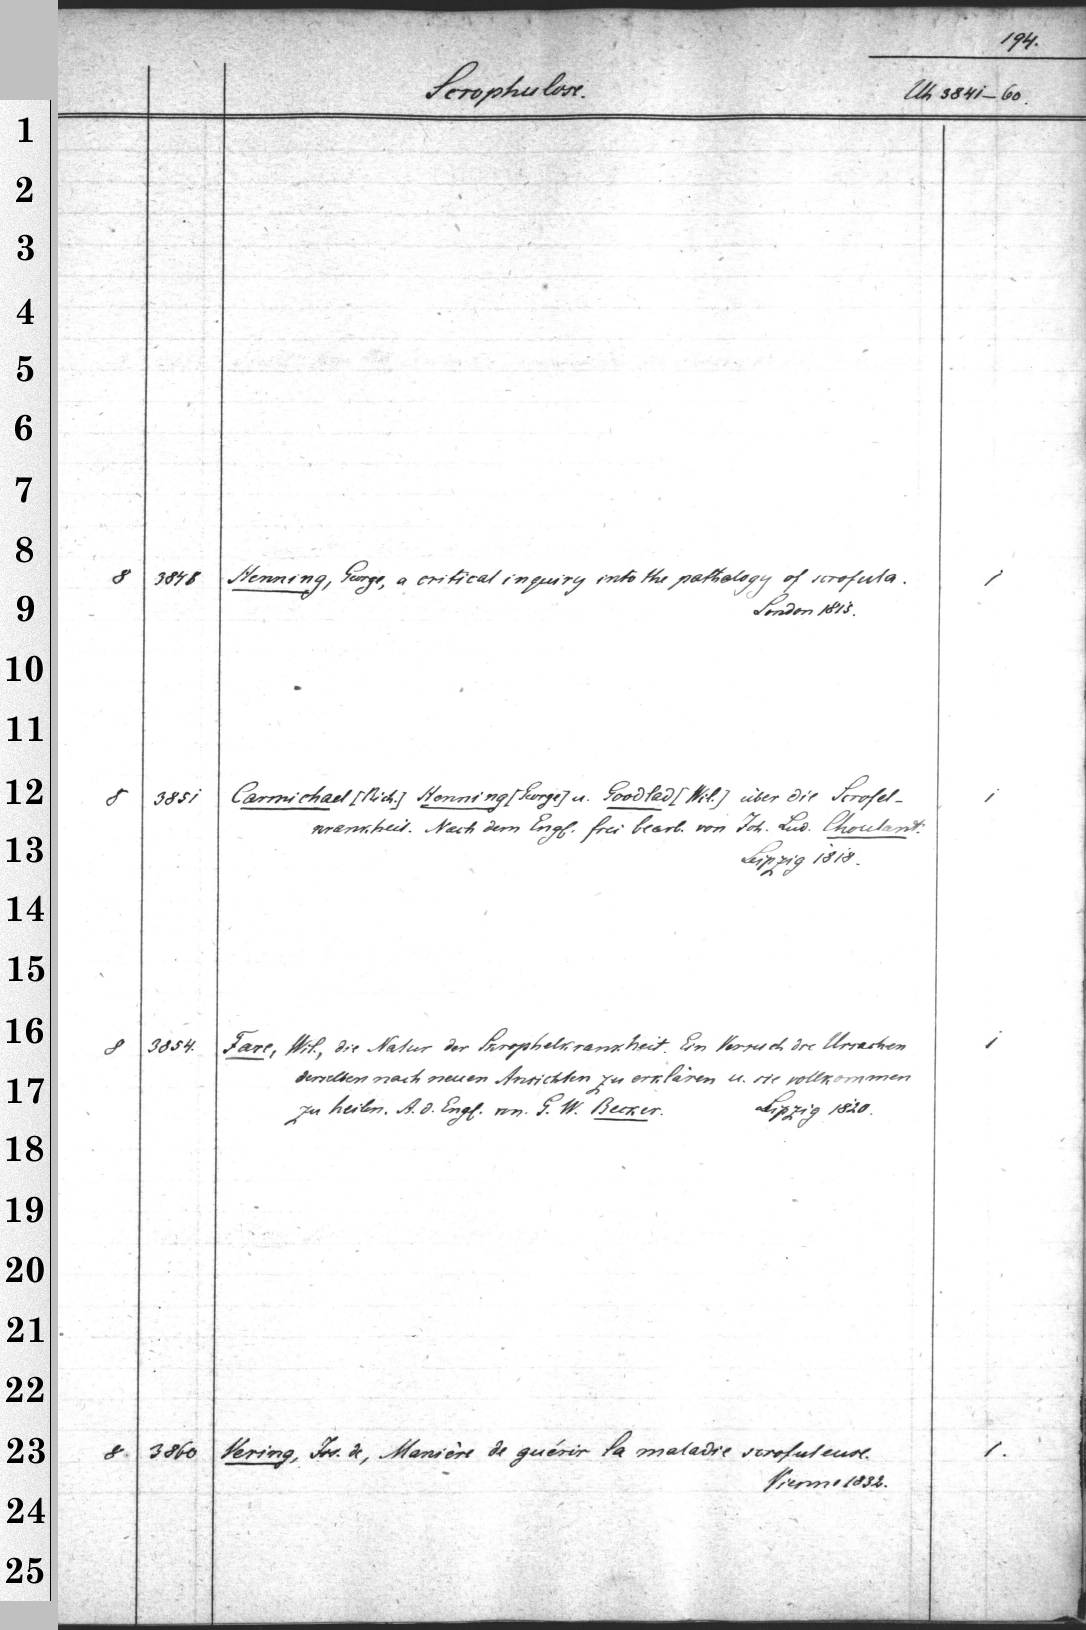 194.
Scrophulose.
Uh 3841-60.
1
2
3
4
5
6
7
8
8 3848 Henning, George, a critical inquiry into the pathology of scrofula. 1
9
London 1815.
10
11
12
8 3851 Carmichael [Rich.] Henning [George] u. Goodlad [Wil.] über die Scrofel-
1
krankheit. Nach dem Engl. frei bearb. von Joh. Lud. Choulant.
13
Leipzig 1818.
14
15
16
8 3854. Farr, Wil., die Natur der Skrophelkrankheit. Ein Versuch die Ursachen 1
derselben nach neuen Ansichten zu erklären u. sie vollkommen
17
zu heilen. A. d. Engl. von G. W. Becker. Leipzig 1820.
18
19
20
21
22
23
8 3860 Vering, Jos. de, Manière de guérir la maladie scrofuleuse. 1.
Vienne 1832.
24
25